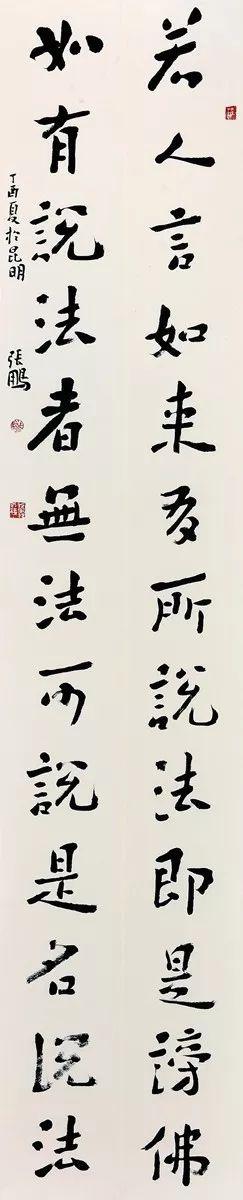 若人言如来有所說法即是謗佛
如有說法者無法可說是名說法
丁酉夏於昆明 張鵬